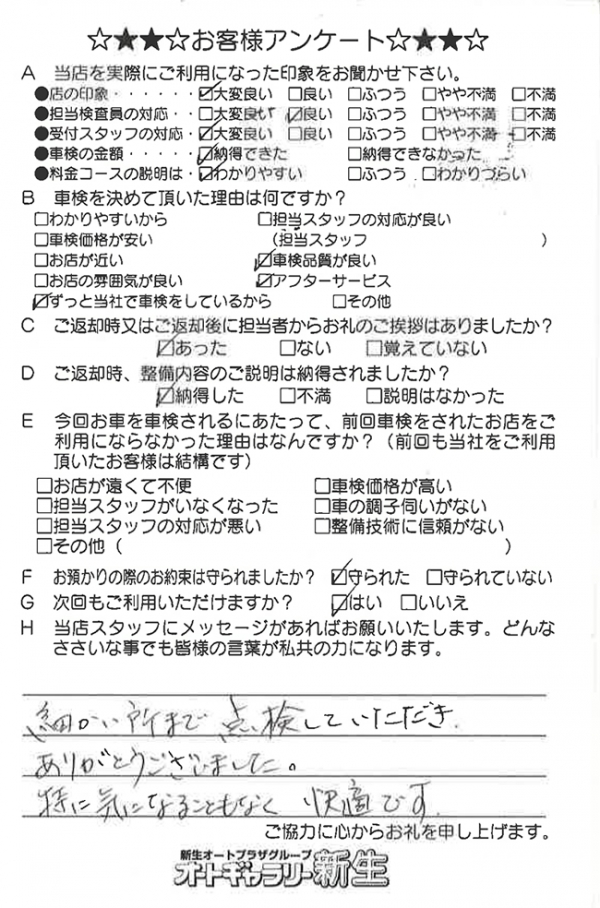 ☆★★☆お客様アンケート☆★★☆
A 当店を実際にご利用になった印象をお聞かせ下さい。
●店の印象・・・・・・☑大変良い □良い □ふつう □やや不満 □不満
●担当検査員の対応・・□大変良い ☑良い □ふつう □やや不満 □不満
●受付スタッフの対応・☑大変良い □良い □ふつう □やや不満 □不満
●車検の金額・・・・・☑納得できた □納得できなかった
●料金コースの説明は・☑わかりやすい □ふつう □わかりづらい
B 車検を決めて頂いた理由は何ですか？
□わかりやすいから □担当スタッフの対応が良い
□車検価格が安い （担当スタッフ ）
□お店が近い ☑車検品質が良い
□お店の雰囲気が良い ☑アフターサービス
☑ずっと当社で車検をしているから □その他
C ご返却時又はご返却後に担当者からお礼のご挨拶はありましたか？
☑あった □ない □覚えていない
D ご返却時、整備内容のご説明は納得されましたか？
☑納得した □不満 □説明はなかった
E 今回お車を車検されるにあたって、前回車検をされたお店をご
利用にならなかった理由はなんですか？（前回も当社をご利用
頂いたお客様は結構です）
□お店が遠くて不便 □車検価格が高い
□担当スタッフがいなくなった □車の調子伺いがない
□担当スタッフの対応が悪い □整備技術に信頼がない
□その他（ ）
F お預かりの際のお約束は守られましたか？ ☑守られた □守られていない
G 次回もご利用いただけますか？ ☑はい □いいえ
H 当店スタッフにメッセージがあればお願いいたします。どんな
ささいな事でも皆様の言葉が私共の力になります。
細かい所まで点検していただき、
ありがとうございました。
特に気になることもなく 快適です。
ご協力に心からお礼を申し上げます。
新生オートプラザグループ
オートギャラリー新生